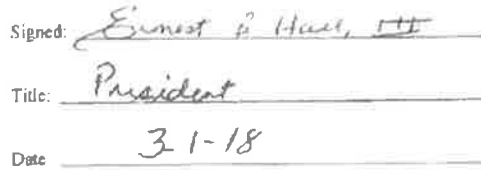 Signed: Ernest P Hall, III
Title: President
Date 3-1-18